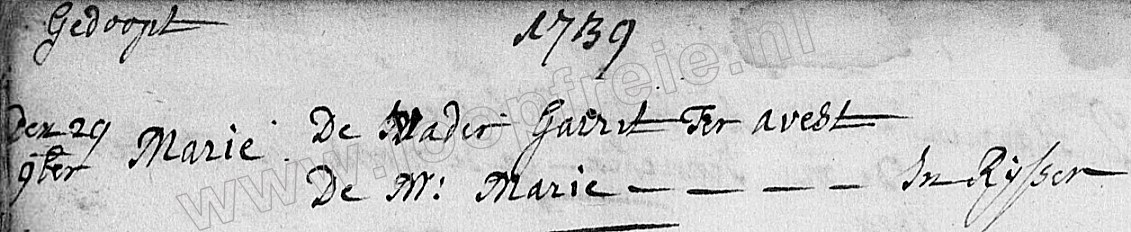 Gedoopt 1739
Den 29 Marie. De Vader Garrit Ter avest
9ber De M: Marie — — — — In Rÿssen
www.kloopfreie.nl